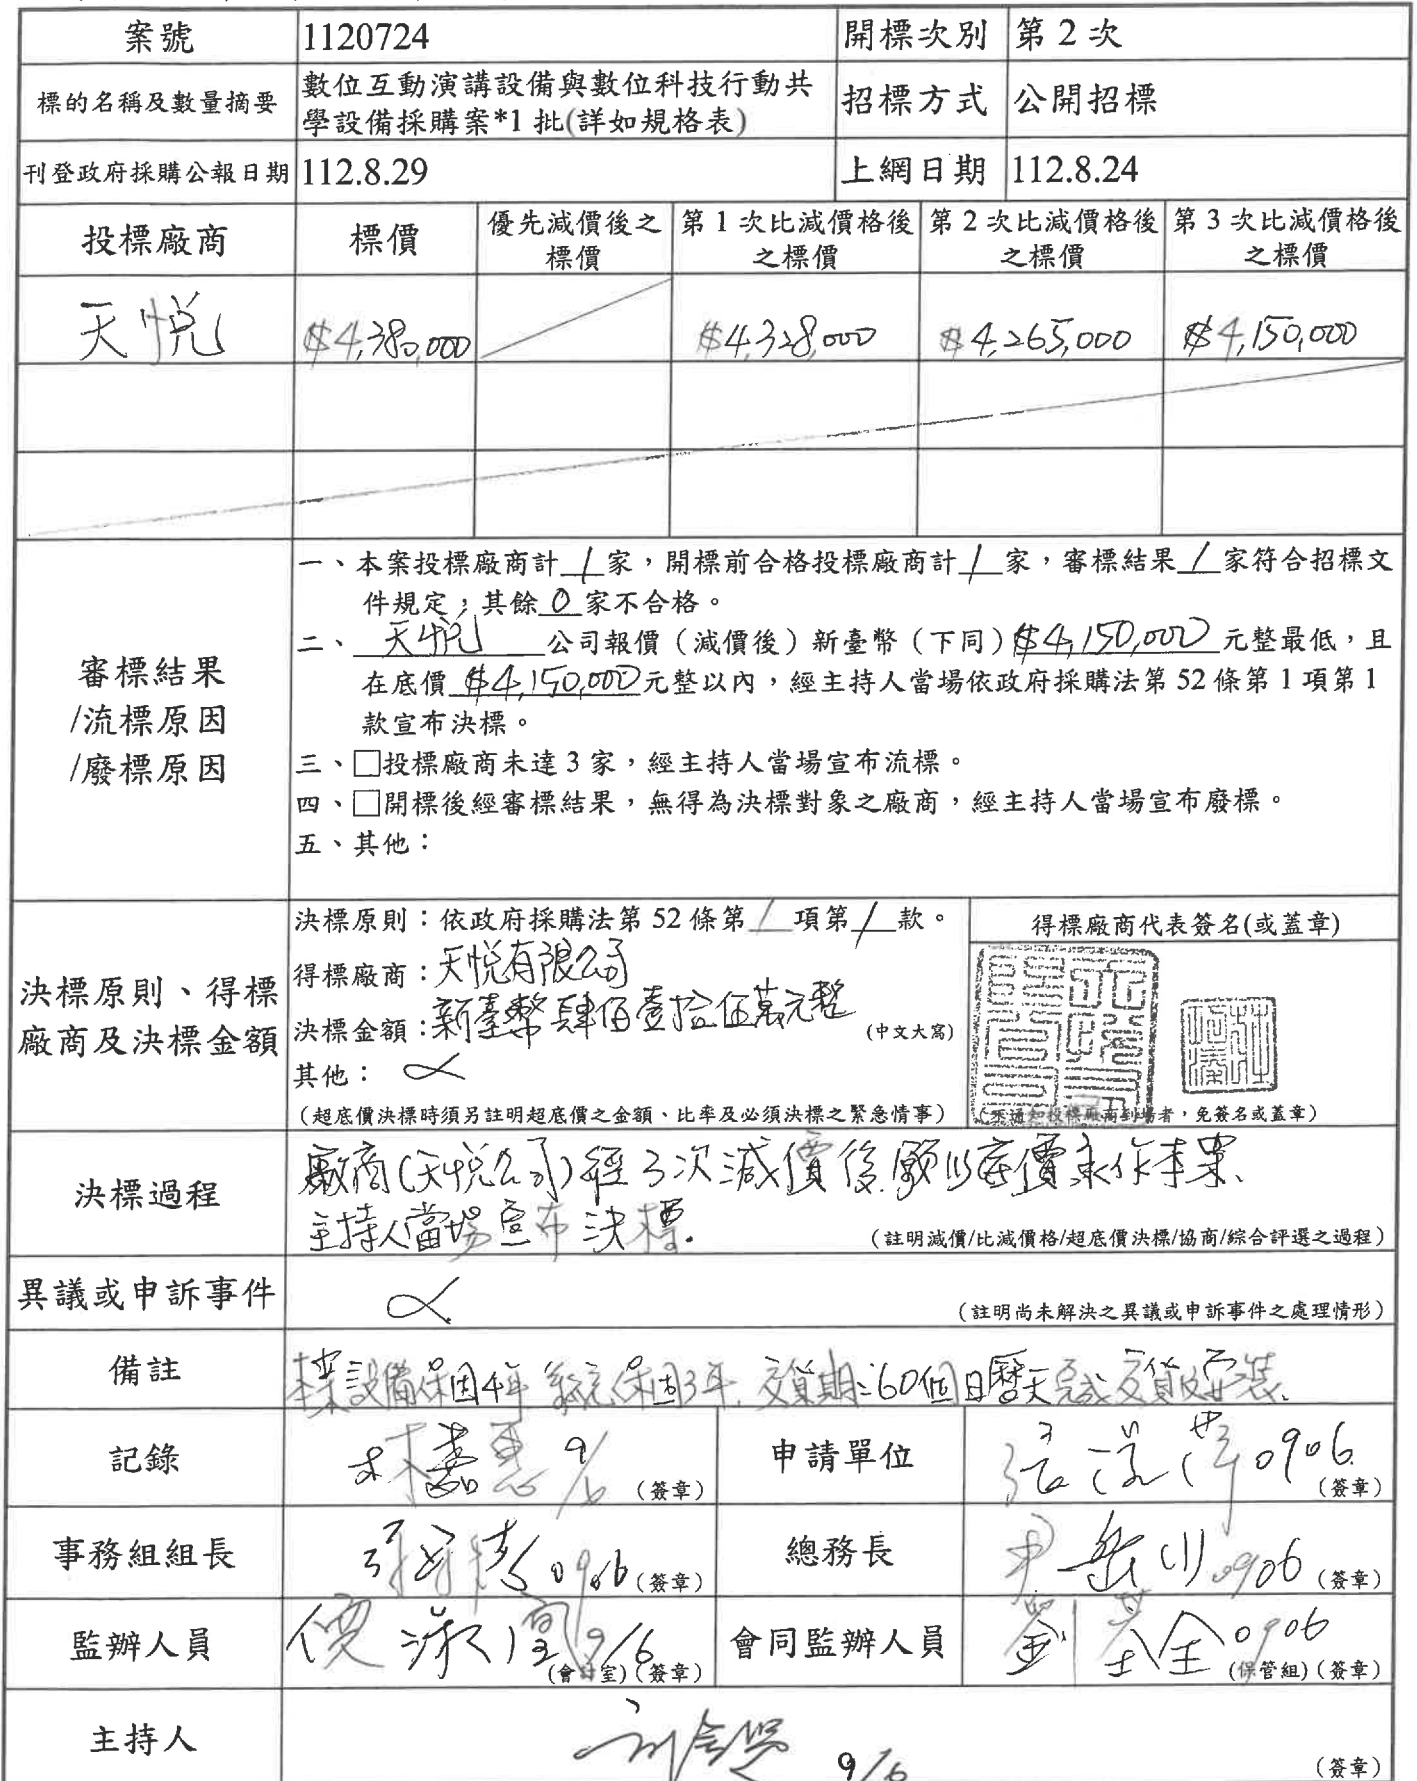 案號 1120724 開標次別 第 2 次
標的名稱及數量摘要 數位互動演講設備與數位科技行動共
學設備採購案*1 批(詳如規格表) 招標方式 公開招標
刊登政府採購公報日期 112.8.29 上網日期 112.8.24
投標廠商 標價 優先減價後之
標價 第 1 次比減價格後
之標價 第 2 次比減價格後
之標價 第 3 次比減價格後
之標價
天悅 $4,380,000 $4,328,000 $4,265,000 $4,150,000
審標結果
/流標原因
/廢標原因
一、本案投標廠商計 1 家，開標前合格投標廠商計 1 家，審標結果 1 家符合招標文
件規定；其餘 0 家不合格。
二、 天悅 公司報價（減價後）新臺幣（下同）$4,150,000 元整最低，且
在底價 $4,150,000 元整以內，經主持人當場依政府採購法第 52 條第 1 項第 1
款宣布決標。
三、□投標廠商未達 3 家，經主持人當場宣布流標。
四、□開標後經審標結果，無得為決標對象之廠商，經主持人當場宣布廢標。
五、其他：
決標原則、得標
廠商及決標金額
決標原則：依政府採購法第 52 條第 1 項第 1 款。
得標廠商：天悅有限公司
決標金額：新臺幣肆佰壹拾伍萬元整 (中文大寫)
其他：
（超底價決標時須另註明超底價之金額、比率及必須決標之緊急情事）
得標廠商代表簽名(或蓋章)
（不通知投標廠商到場者，免簽名或蓋章）
決標過程 廠商(天悅公司)經3次減價後,願以底價承作本案、
主持人當場宣布決標.
（註明減價/比減價格/超底價決標/協商/綜合評選之過程）
異議或申訴事件 （註明尚未解決之異議或申訴事件之處理情形）
備註 本案設備保固4年 系統保固3年, 交貨期:60個日曆天完成交貨及安裝.
記錄 林嘉惠 9/6 （簽章） 申請單位 0906 （簽章）
事務組組長 0906 （簽章） 總務長 0906 （簽章）
監辦人員 9/6 (會計室)（簽章） 會同監辦人員 劉 0906 (保管組)（簽章）
主持人 9/6 （簽章）